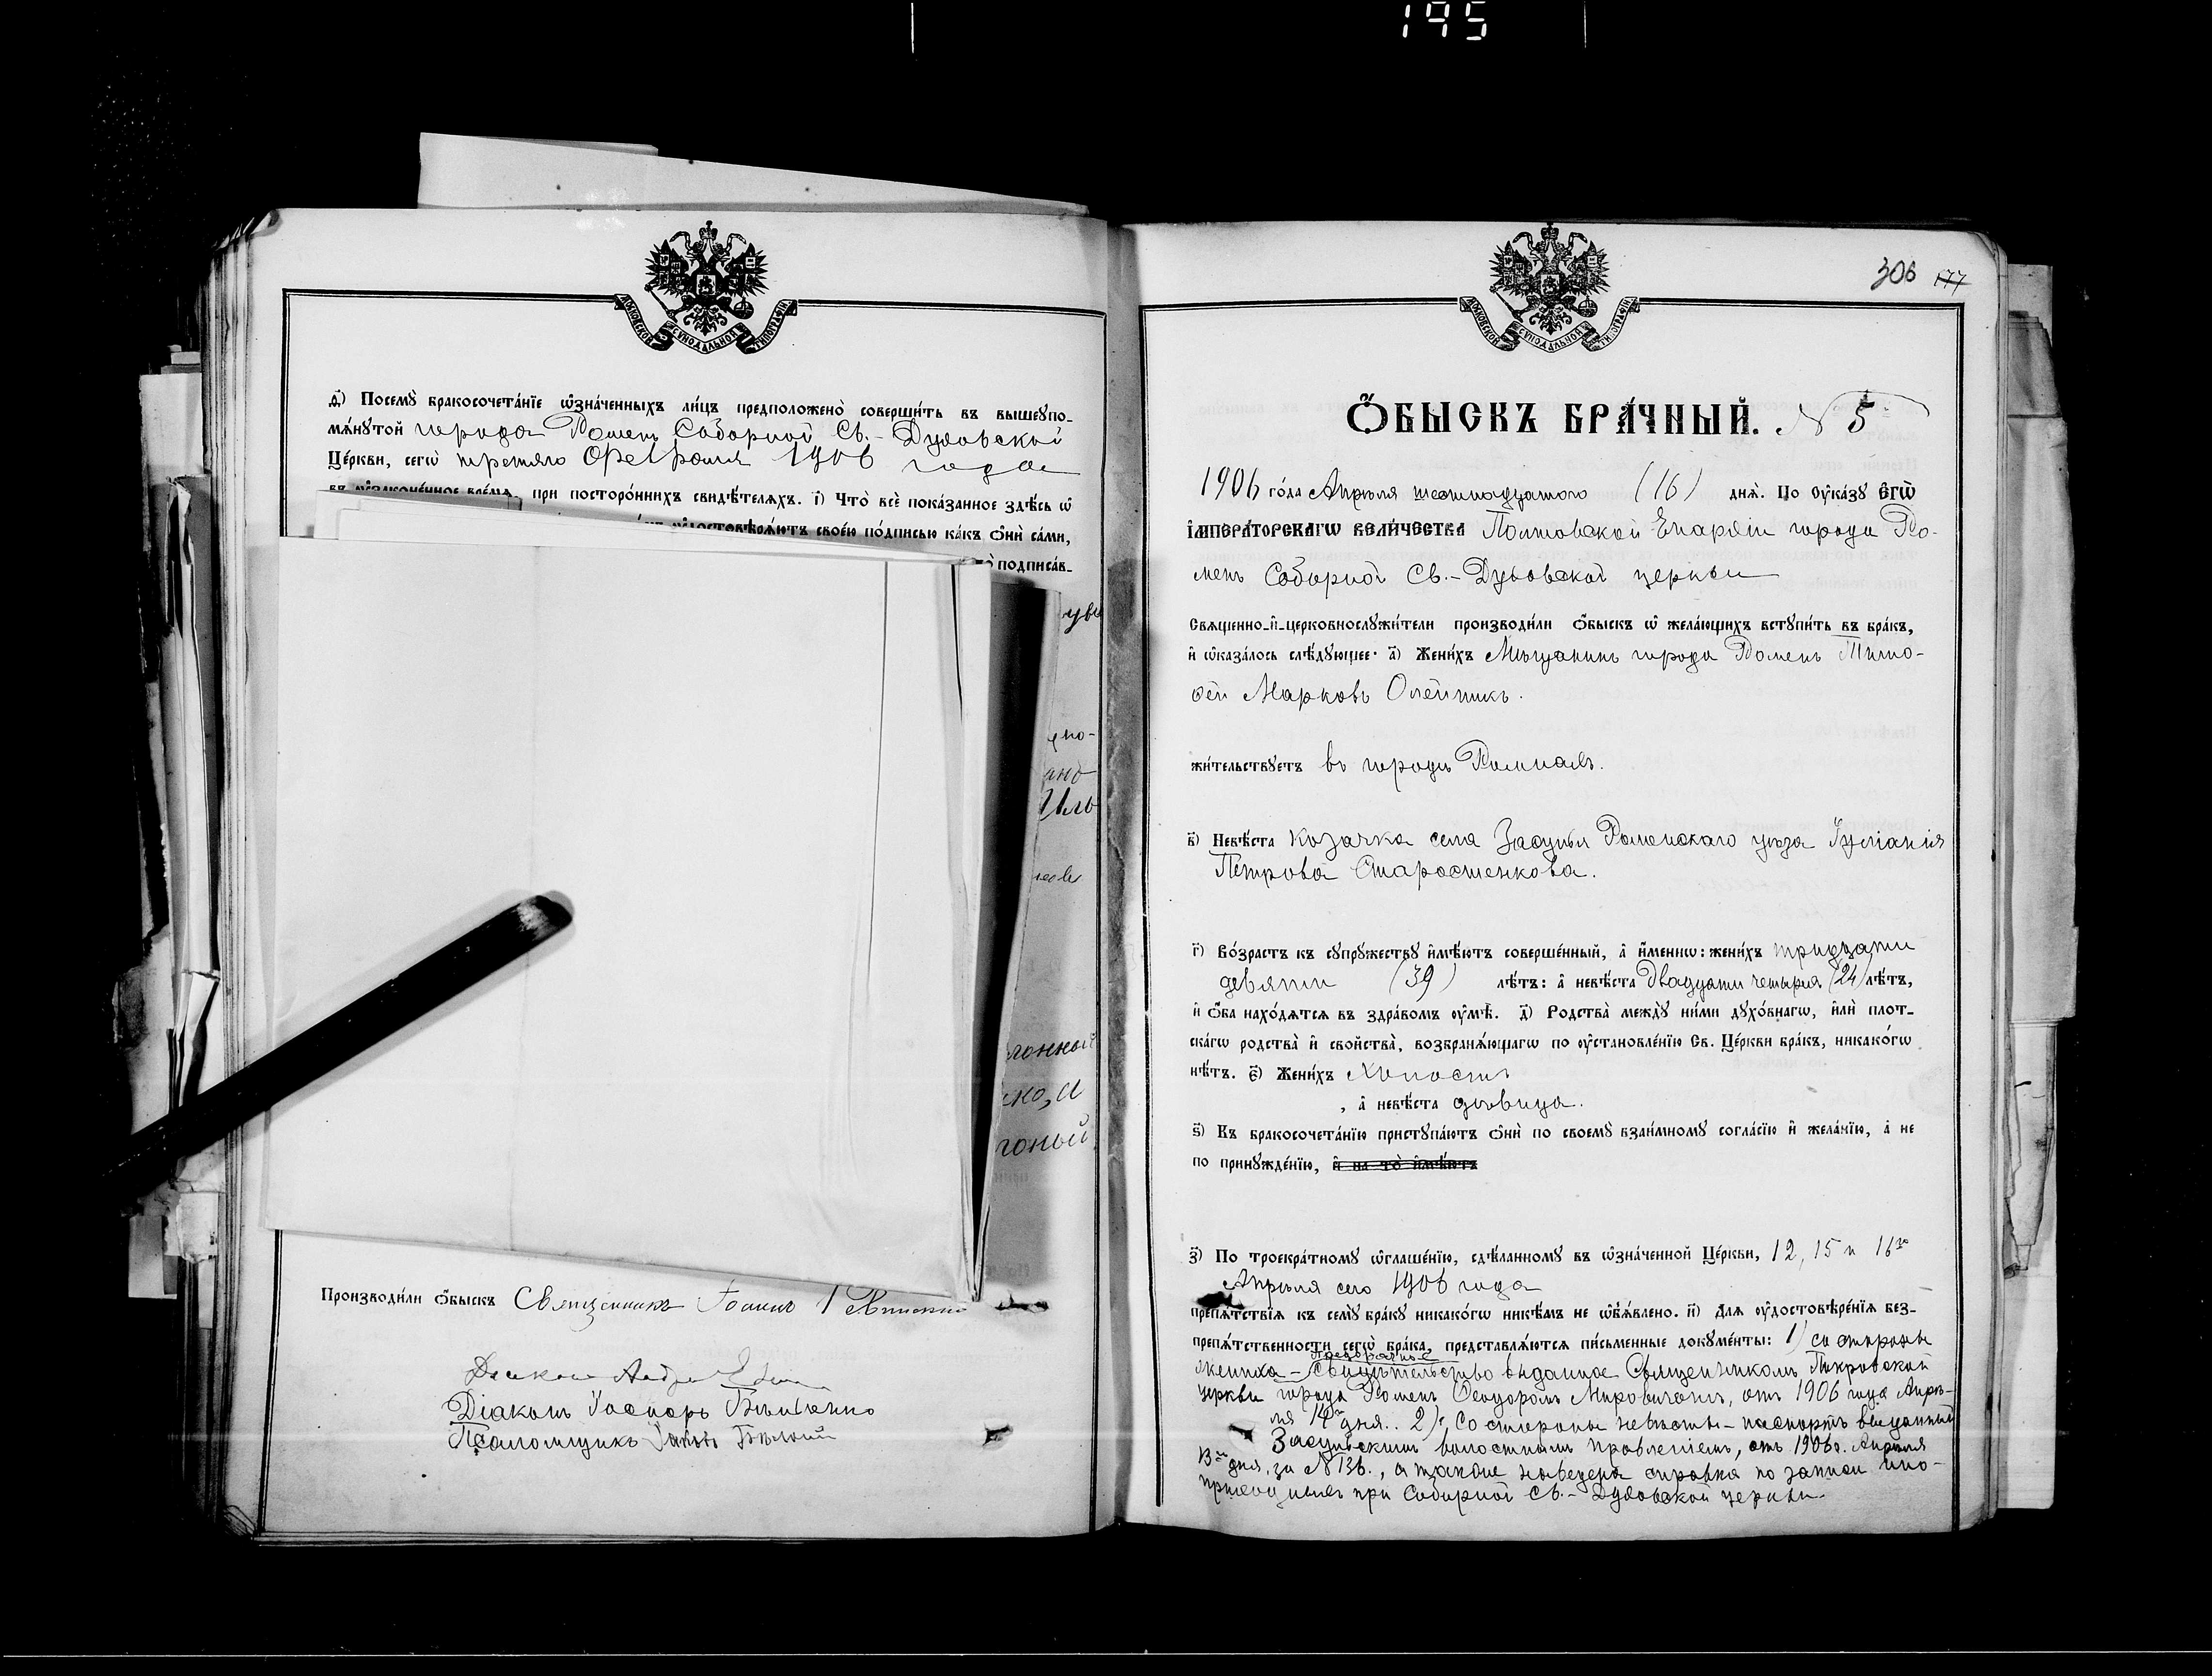 195
МОСКОВСКОЙ СУНОДАЛЬНОЙ ТИПОГРАФIИ
д҃і) Посемꙋ бракосочета́нїе ѡ҆зна́ченныхъ ли́цъ предположено̀ соверши́ть въ вышеупо-
мѧ́нутой города Ромен Соборной Св.-Духовской
Це́ркви, сегѡ̀ третяго Февраля 1906 года
въ ᲂу҆зако́ненное вре́мѧ, при посторо́ннихъ свидѣ́телѧхъ. і҃) Что̀ всѐ пока́занное здѣ́сь ѡ҆
ᲂу҆достовѣрѧ́ютъ свое́ю по́дписью ка́къ ѻ҆нѝ са́ми,
подписа́в-
Производи́ли ѻ҆́быскъ Священникъ Іоаннъ
Дiаконъ
Псаломщикъ Яковъ
МОСКОВСКОЙ СУНОДАЛЬНОЙ ТИПОГРАФIИ
306 177
Ѻ҆́БЫСКЪ БРА́ЧНЫЙ. N 5
1906 го́да Апрѣля шестнадцатого (16) днѧ̀. По ᲂу҆ка́зꙋ Е҆ГѠ̀
І҆МПЕРА́ТОРСКАГѠ ВЕЛИ́ЧЕСТВА Полтовской Епархiи города Ро-
менъ Соборной Св.-Духовской церкви
Свѧще́нно-и҆-церковнослꙋжи́тели производи́ли ѻ҆́быскъ ѡ҆ жела́ющихъ встꙋпи́ть въ бра́къ,
и҆ ѡ҆каза́лось слѣ́дꙋющее: а҃) Жени́хъ Мѣщанинъ города Роменъ Тимо-
ѳей Марковъ Олейникъ.
жи́тельствꙋетъ въ городѣ Ромнахъ.
в҃) Невѣ́ста Козачка села Засулья Роменскаго уѣзда Іуліанія
Петрова Старостенкова.
г҃) Во́зрастъ къ сꙋпрꙋ́жествꙋ и҆мѣ́ютъ соверше́нный, а҆ и҆́меннѡ: жени́хъ тридцати
девяти (39) лѣ́тъ: а҆ невѣ́ста двадцати четырехъ (24) лѣ́тъ,
и҆ ѻ҆́ба нахо́дѧтсѧ въ здра́вомъ ᲂу҆мѣ̀. д҃) Родства̀ междꙋ̀ ни́ми дꙋхо́внагѡ, и҆лѝ плот-
ска́гѡ родства̀ и҆ сво́йства̀, возбранѧ́ющагѡ по ᲂу҆становле́нїю Св. Це́ркви бра́къ, никако́гѡ
нѣ́тъ. є҃) Жени́хъ холостъ
, а҆ невѣ́ста дѣвица.
ѕ҃) Къ бракосочета́нїю пристꙋпа́ютъ ѻ҆нѝ по своемꙋ̀ взаи́мномꙋ согла́сїю и҆ жела́нїю, а҆ не
по принꙋжде́нїю, и҆ на то̀ и҆мѣ́ютъ
з҃) По троекра́тномꙋ ѡ҆глаше́нїю, сдѣ́ланномꙋ въ ѡ҆зна́ченной Це́ркви, 12, 15 и 16го
Апрѣля сего 1906 года
препѧ́тствїѧ къ семꙋ̀ бра́кꙋ никако́гѡ никѣ́мъ не ѡ҆б̾ѧ́влено. и҃) Длѧ ᲂу҆достовѣре́нїѧ без-
препѧ́тственности сегѡ̀ бра́ка, представлѧ́ютсѧ пи́сьменные докꙋме́нты: 1) со стороны
Предбрачное
жениха – Свидѣтельство выданное Священникомъ Покровской
церкви города Роменъ Ѳеодоромъ Мировичемъ, отъ 1906 года Апрѣ-
ля 14го дня. 2) Со стороны невѣсты – паспортъ выданный
Засульскимъ волостнымъ правленіемъ, отъ 1906 г. Апрѣля
13го дня, за N 136., а также наведена справка по записи ино-
приходцевъ при Соборной Св.-Духовской церкви.